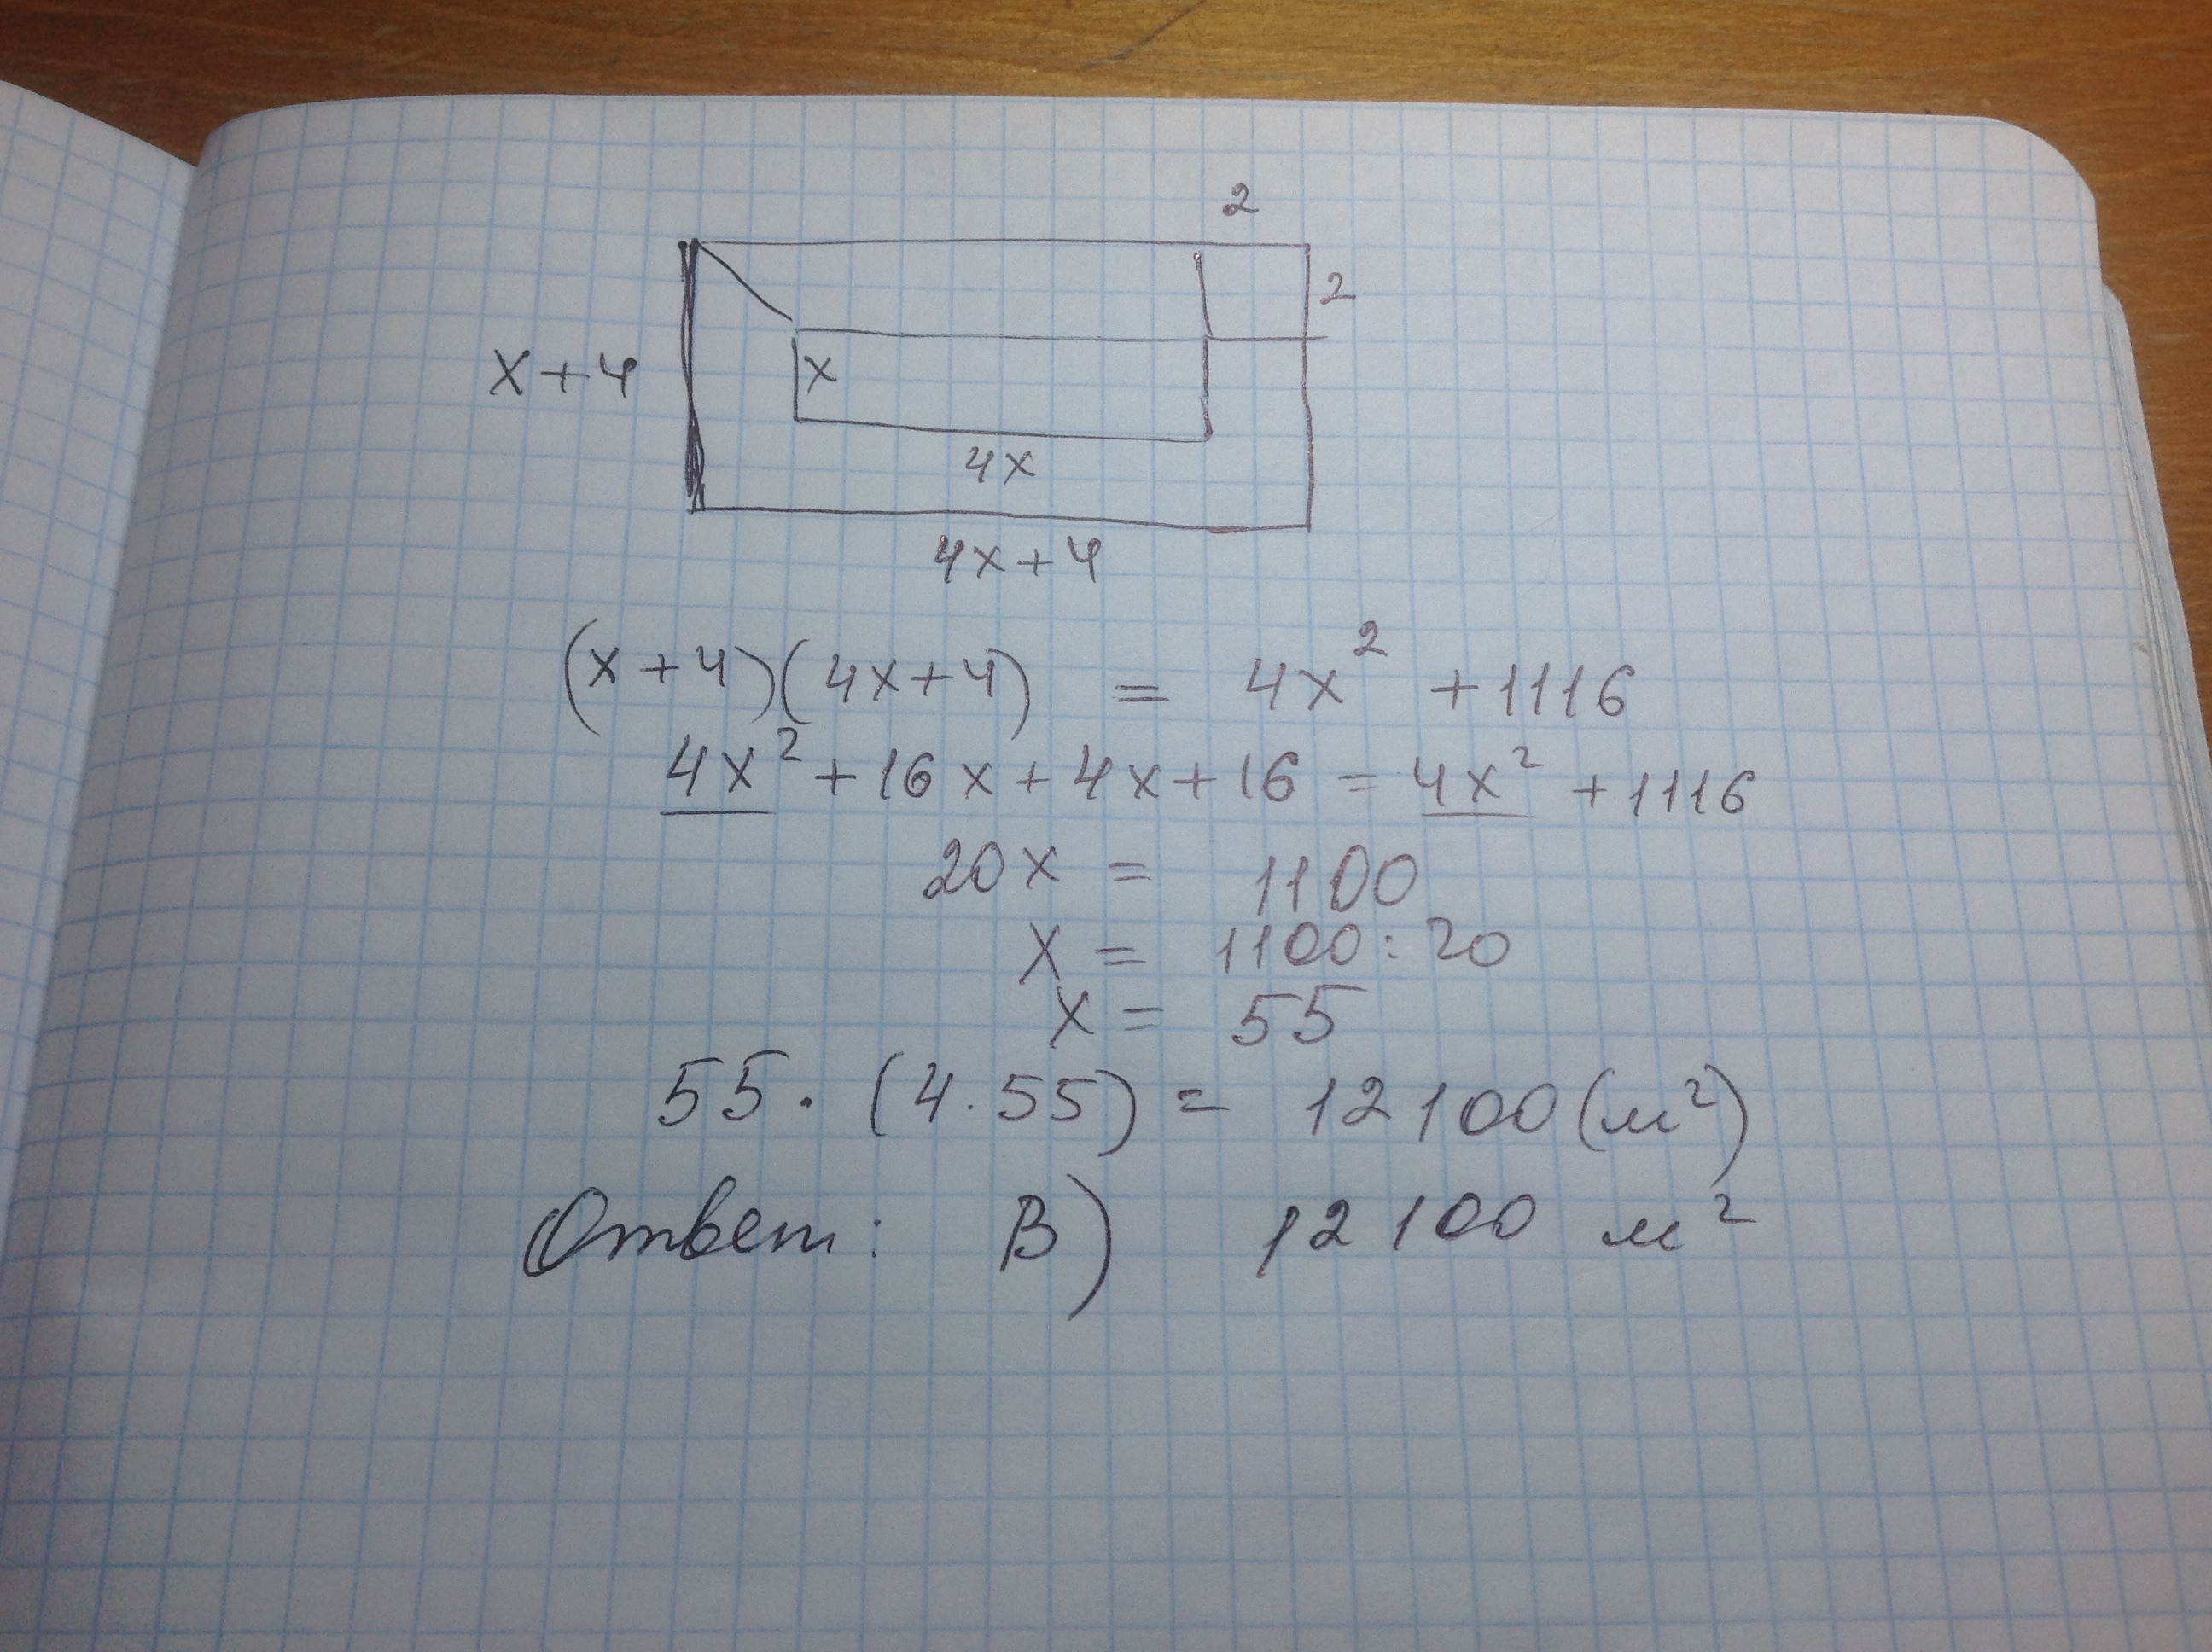 2
2
x+4
x
4x
4x+4
(x+4)(4x+4) = 4x² +1116
4x²+16x+4x+16 = 4x² +1116
20x = 1100
x = 1100:20
x = 55
55·(4·55) = 12100(м²)
Ответ: В) 12100 м²